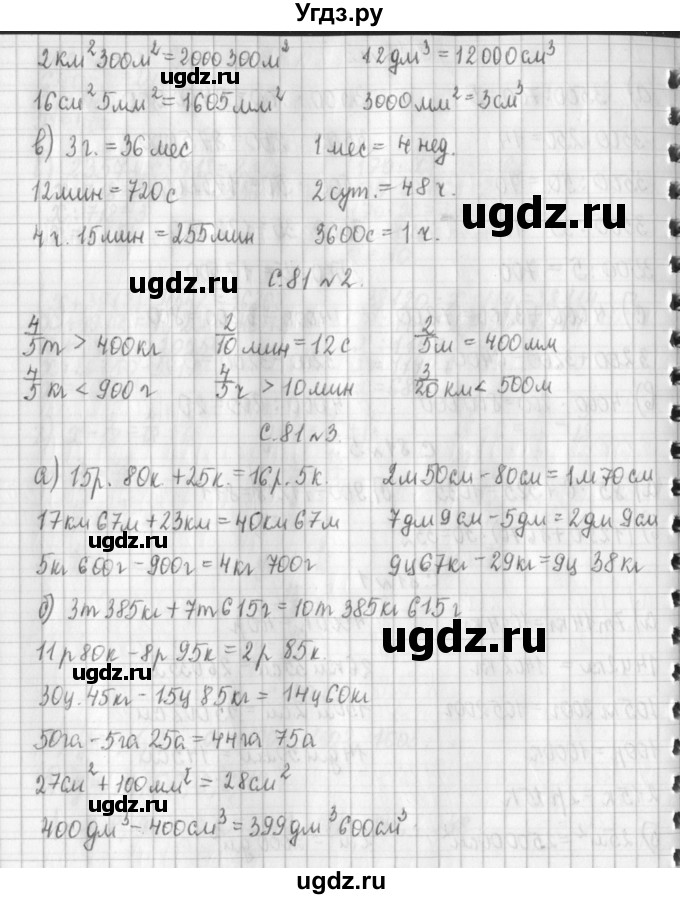 Угдз.ру
2км² 300м² = 2000300м² 12дм³ = 12000см³
ugdz.ru
16см² 5мм² = 1605мм² 3000мм² = 3см³
в) 3г. = 36 мес 1мес = 4 нед.
12мин = 720с 2сут. = 48ч.
ugdz.ru
4ч. 15мин = 255мин 3600с = 1ч.
ugdz.ru
с.81 №2.
4/5т > 400кг 2/10 мин = 12с 2/5м = 400мм
4/5кг < 900г 4/5ч > 10мин 3/20км < 500м
с.81 №3.
а) 15р. 80к + 25к. = 16р. 5к. 2м50см - 80см = 1м70см
17км 67м + 23км = 40км 67м 7дм 9см - 5дм = 2дм 9см
ugdz.ru
5кг 600г - 900г = 4кг 700г 9ц67кг - 29кг = 9ц 38кг
б) 3т 385кг + 7т 615г = 10т 385кг 615г
ugdz.ru
11р80к - 8р 95к = 2р 85к.
ugdz.ru
30ц. 45кг - 15ц 85кг = 14ц60кг
50га - 5га 25а = 44га 75а
27см² + 100мм² = 28см²
ugdz.ru
400дм³ - 400см³ = 399дм³ 600см³
ugdz.ru
ugdz.ru